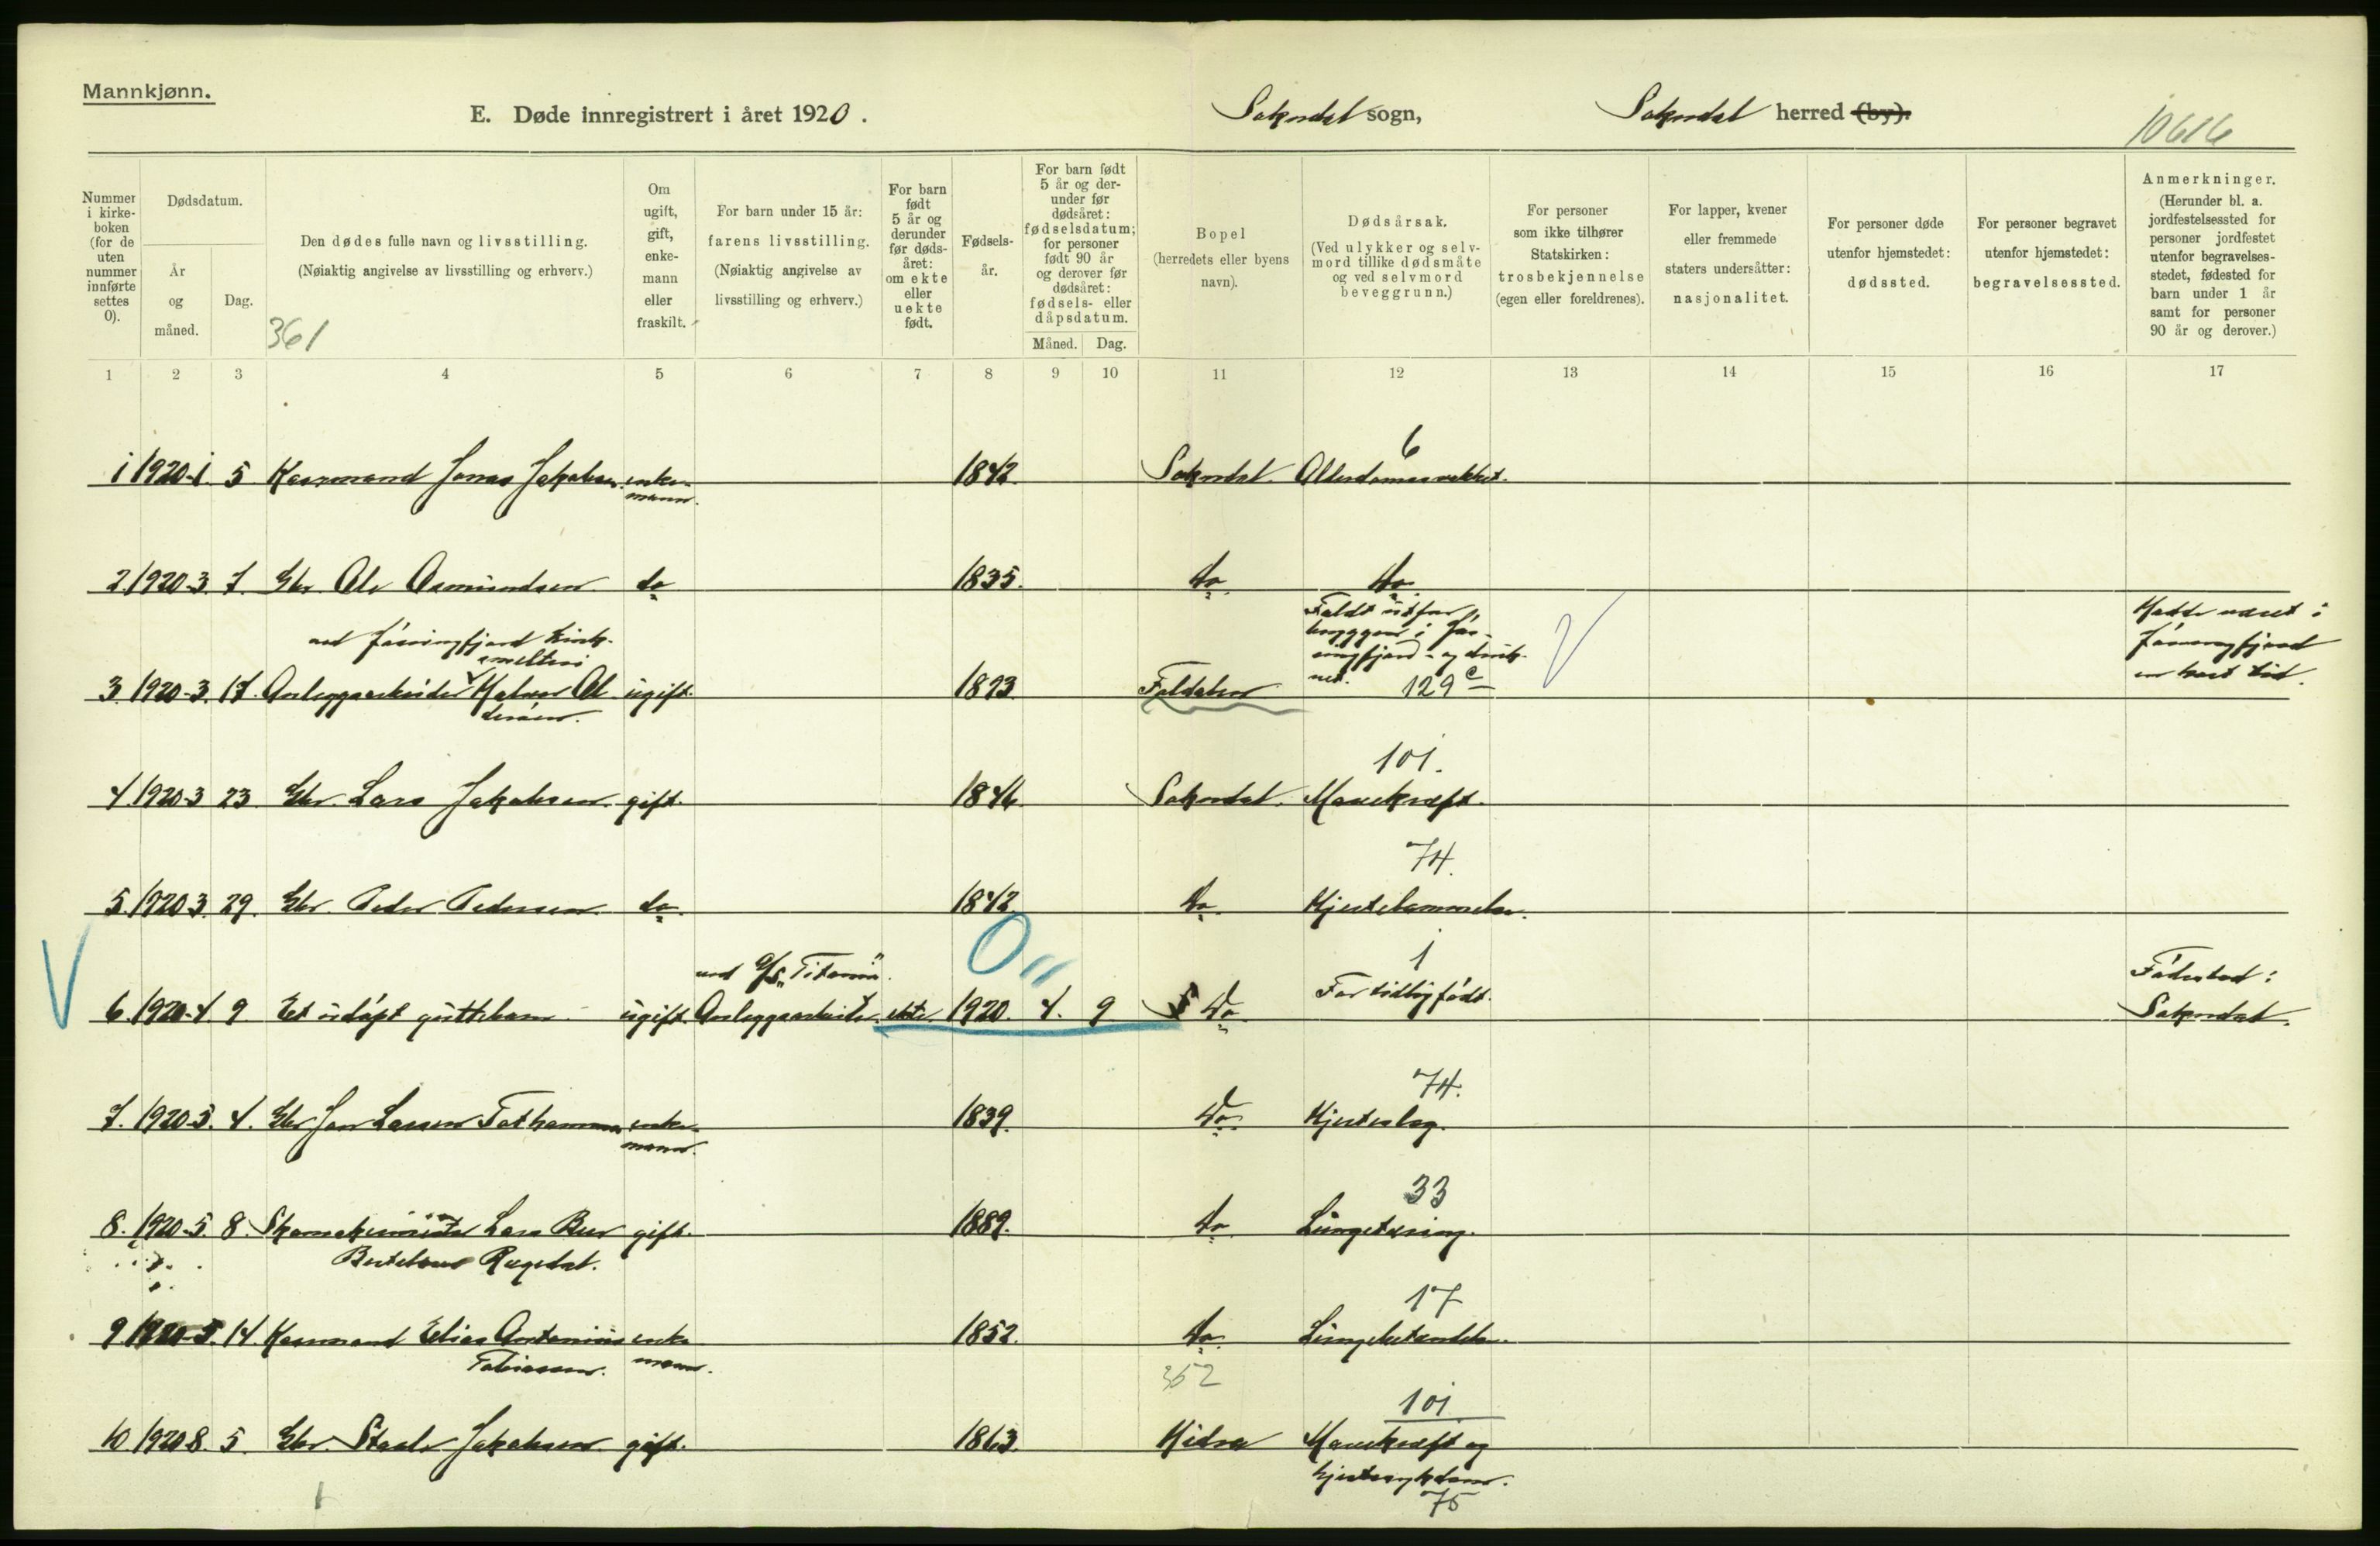 Mannkjønn.
E. Døde innregistrert i året 1920. Sokndal sogn, Sokndal herred (by).
10616
Nummer i kirke-boken (for de uten nummer innførte settes 0).
Dødsdatum.
År og måned.
Dag.
Den dødes fulle navn og livsstilling.
(Nøiaktig angivelse av livsstilling og erhverv.)
361
Om ugift, gift, enke-mann eller fraskilt.
For barn under 15 år:
farens livsstilling.
(Nøiaktig angivelse av livsstilling og erhverv.)
For barn født 5 år og derunder før døds-året: om ekte eller uekte født.
Fødsels-år.
For barn født 5 år og der-under før dødsåret: fødselsdatum; for personer født 90 år og derover før dødsåret: fødsels- eller dåpsdatum.
Måned. Dag.
Bopel
(herredets eller byens navn).
Dødsårsak.
(Ved ulykker og selv-mord tillike dødsmåte og ved selvmord beveggrunn.)
For personer som ikke tilhører Statskirken: trosbekjennelse (egen eller foreldrenes).
For lapper, kvener eller fremmede staters undersåtter: nasjonalitet.
For personer døde utenfor hjemstedet: dødssted.
For personer begravet utenfor hjemstedet: begravelsessted.
Anmerkninger.
(Herunder bl. a. jordfestelsessted for personer jordfestet utenfor begravelses-stedet, fødested for barn under 1 år samt for personer 90 år og derover.)
1 2 3 4 5 6 7 8 9 10 11 12 13 14 15 16 17
6
1 1920-1. 5 Kaarmand Jonas Jakobsen enke- 1842. Sokndal. Alderdomssvakhet.
mann.
2. 1920-3. 7. Gbr. Ole Osmundsen. do 1835. do. do.
ved Jøssingfjord Zink-
smelteri
Faldt utfor
bryggen i Jøs-
singfjord - og druk-
net. 129 c
Hadde været i
Jøssingfjord
en kort tid.
3. 1920-3. 17. Anleggsarbeider ugift. 1893.
101.
4. 1920-3 23. Gbr. Lars Jakobsen. gift. 1846. Sokndal. Mavekræft.
74.
5. 1920 3. 29. Gbr. Peder Pedersen. do. 1842. do. Hjertelammelse.
0
ved A/S "Titania".
1
Fødested:
6. 1920-4 9 Et udøpt guttebarn ugift. Anleggsarbeider. ekte 1920. 4. 9 do. For tidlig født.
Sokndal.
74.
7. 1920-5. 4. Gbr Jan Larsen enke- 1839. do. Hjerteslag.
mann.
33
8. 1920-5. 8. Lars gift. 1889. do. Lungetæring.
Bertelsen Regedal.
17
9. 1920-5. 14 Kaarmand Elias Antonius enke 1852. do. Lungebetendelse.
Tobiassen. mann.
352
101
10 1920 8. 5. Gbr. Staale Jakobsen gift. 1863. Hidra Mavekræft og
hjertesykdom.
75